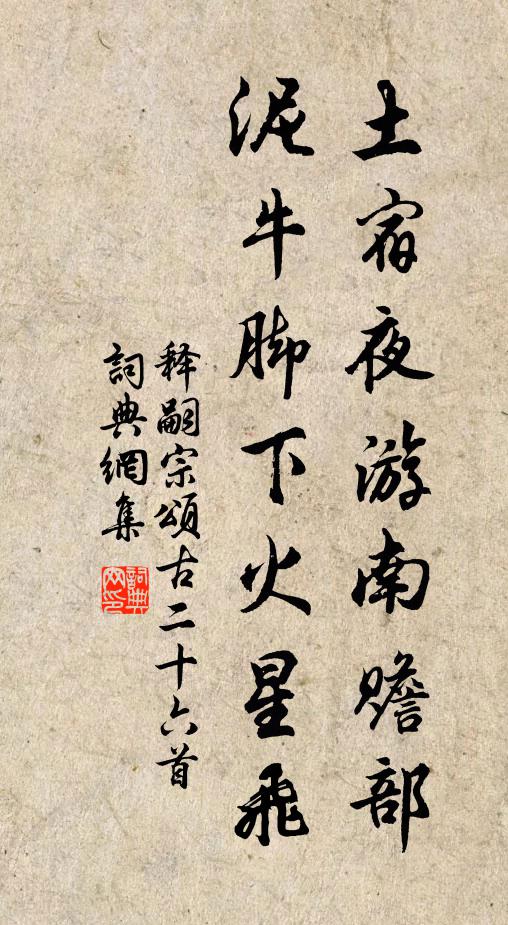 土宿夜游南赡部
泥牛脚下火星飛
释嗣宗頌古二十六首
詞典網集
詞典
网印